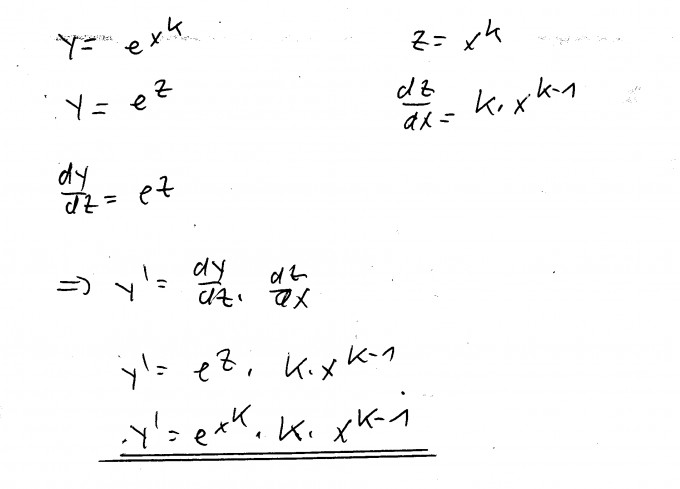 y = e^{x^k} z = x^k
y = e^z dz/dx = k · x^{k-1}
dy/dz = e^z
=> y' = dy/dz · dz/dx
y' = e^z · k · x^{k-1}
y' = e^{x^k} · k · x^{k-1}